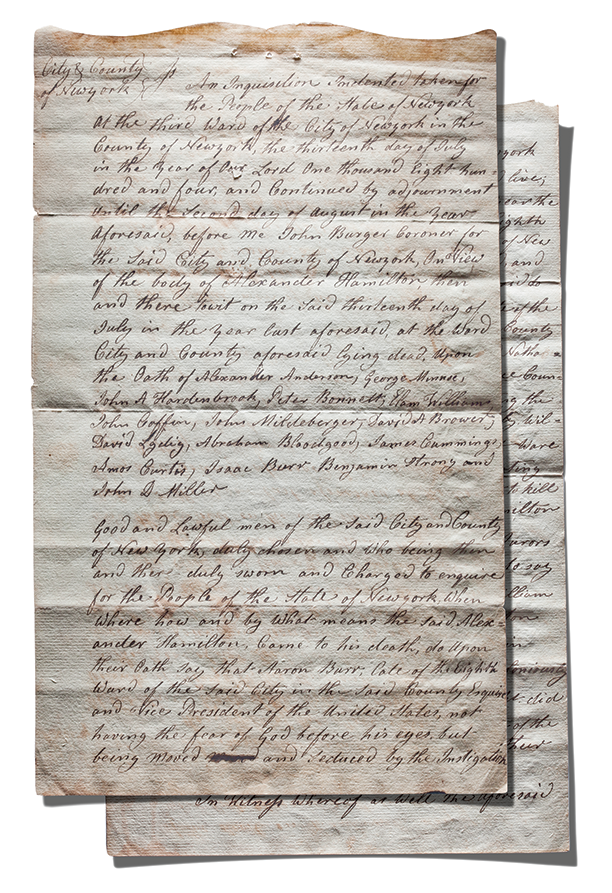 City & County
of Newyork
An Inquisition Indented taken for
the People of the State of Newyork
At the third Ward of the City of Newyork in the
County of Newyork, the thirteenth day of July
in the Year of Our Lord One thousand Eight hun-
dred and four, and Continued by adjournment
Until the Second day of August in the Year
Aforesaid, before me John Burger Coroner for
the Said City and County of Newyork, On View
of the body of Alexander Hamilton then
and there towit on the Said thirteenth day of
July in the Year last aforesaid, at the Ward
City and County aforesaid lying dead, Upon
the Oath of Alexander Anderson, George Minuse,
John A Hardenbrook, Peter Bonnett, Elam Williams
John Coffin, John Mildeberger, David A Brower,
David Lydig, Abraham Bloodgood, James Cummings,
Amos Curtis, Isaac Burr Benjamin Strong and
John D Miller
Good and Lawful men of the Said City and County
of New York, duly chosen and who being then
and there duly sworn and Charged to enquire
for the People of the State of Newyork, When
Where how and by what means the said Alex-
ander Hamilton, Came to his death, do Upon
their Oath Say that Aaron Burr, late of the Eighth
Ward of the Said City in the Said County Esquire
and Vice President of the United States, not
having the fear of God before his eyes, but
being moved and Seduced by the Instigation
york
live;
near the
Eighth
of New
and
did
of the
County
Natha=
Coun-
the
Wil-
Ware
to kill
milton
Jurors
to say
William
on
in
did
of the
their
In Witness Whereof as well the aforesaid